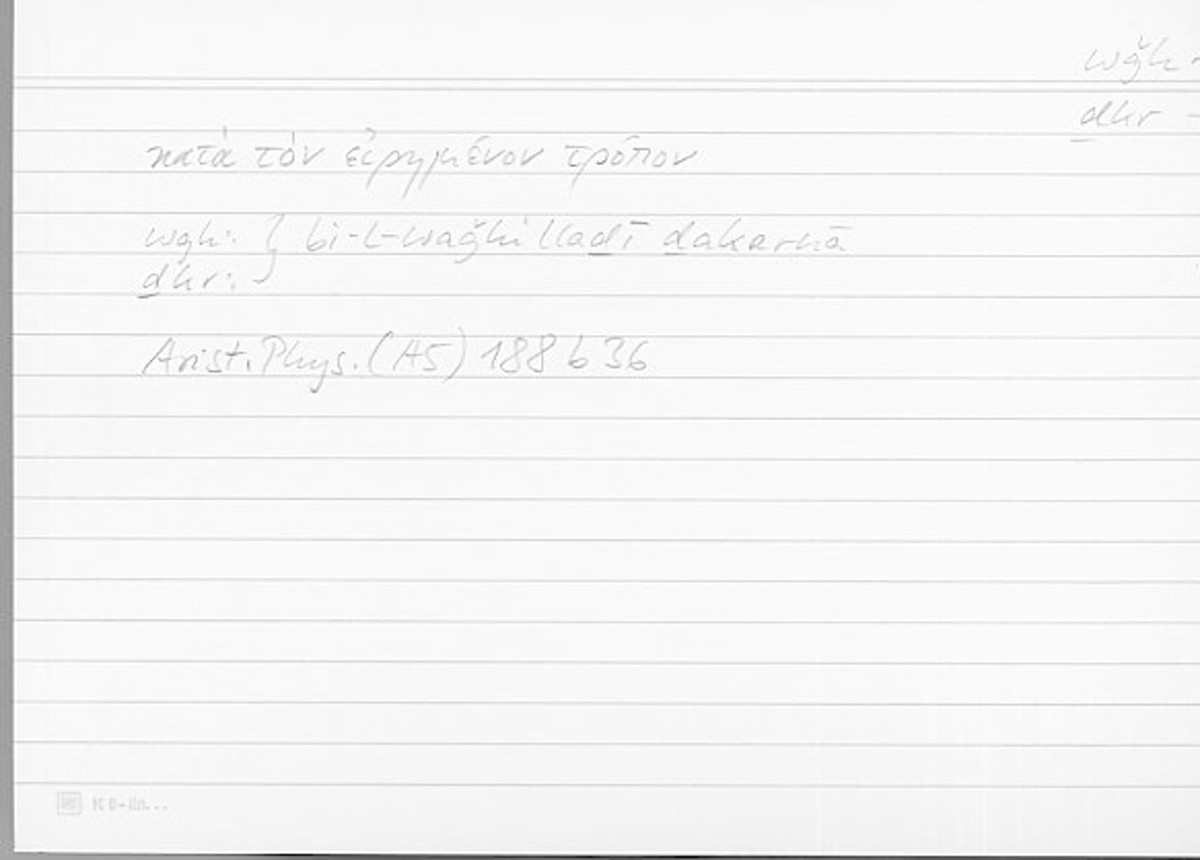 wǧh
ḏkr -
κατὰ τὸν εἰρημένον τρόπον
wǧh: } bi-l-waǧhi lladī ḏakarnā
ḏkr:
Arist. Phys. (A5) 188 b 36